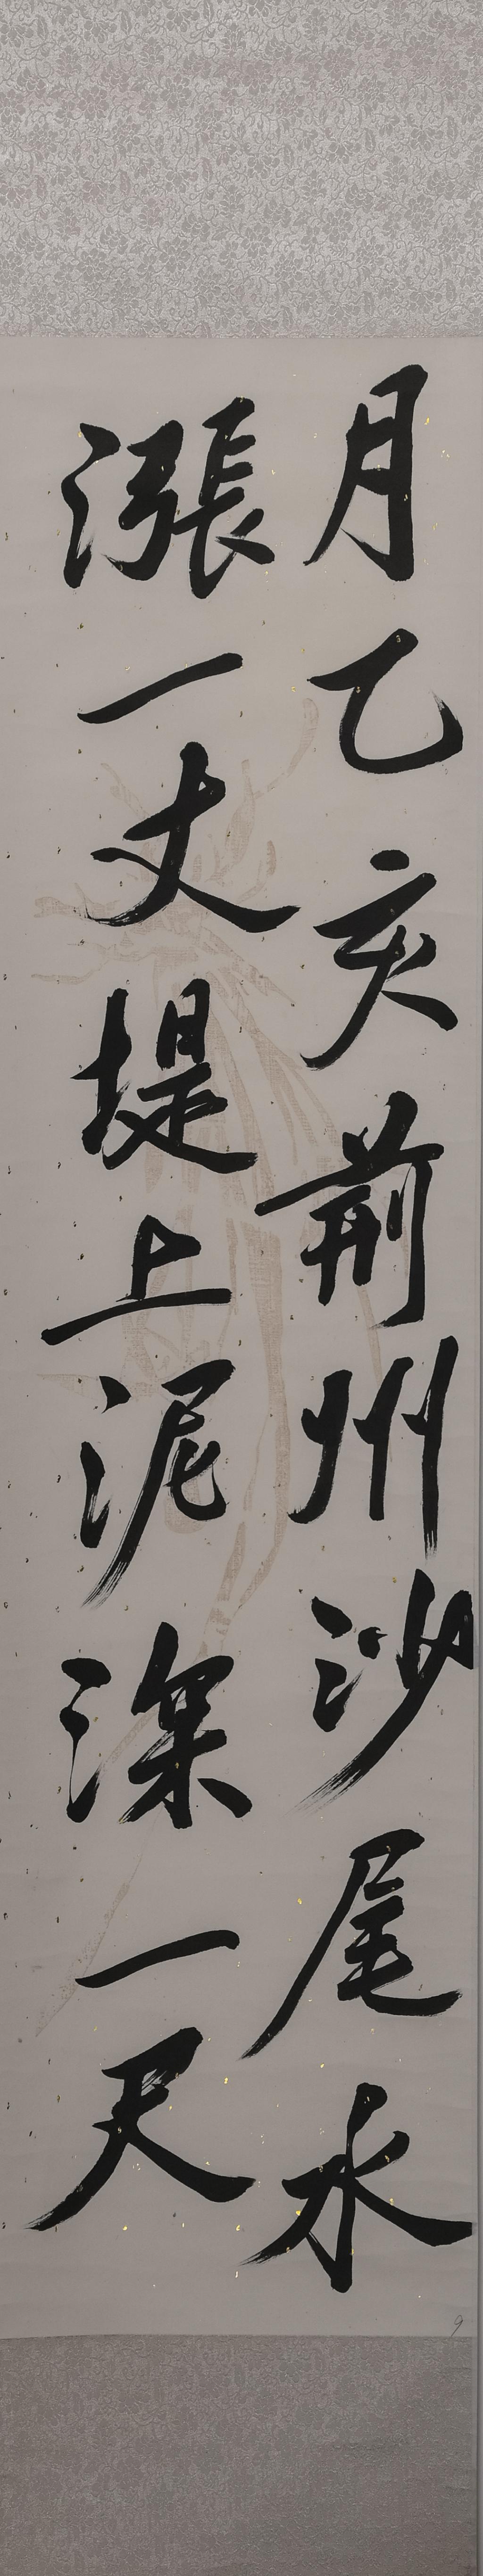 月乙亥荊州沙尾水
漲一丈堤上泥深一尺
9